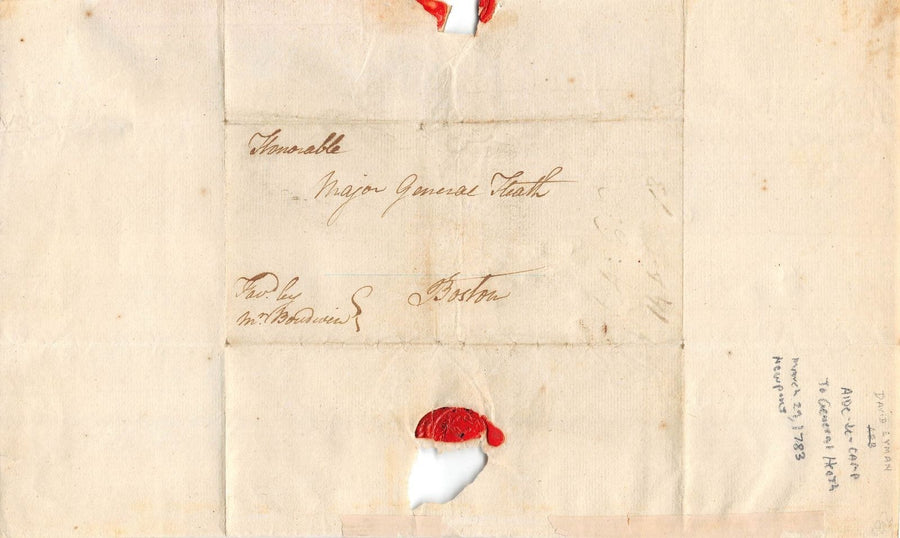 Honorable
Major General Heath
Fav.d by
Mr. Boudwin
Boston
DAVID LYMAN
AIDE-de-CAMP
To General Heath
March 29, 1783
NEWPORT